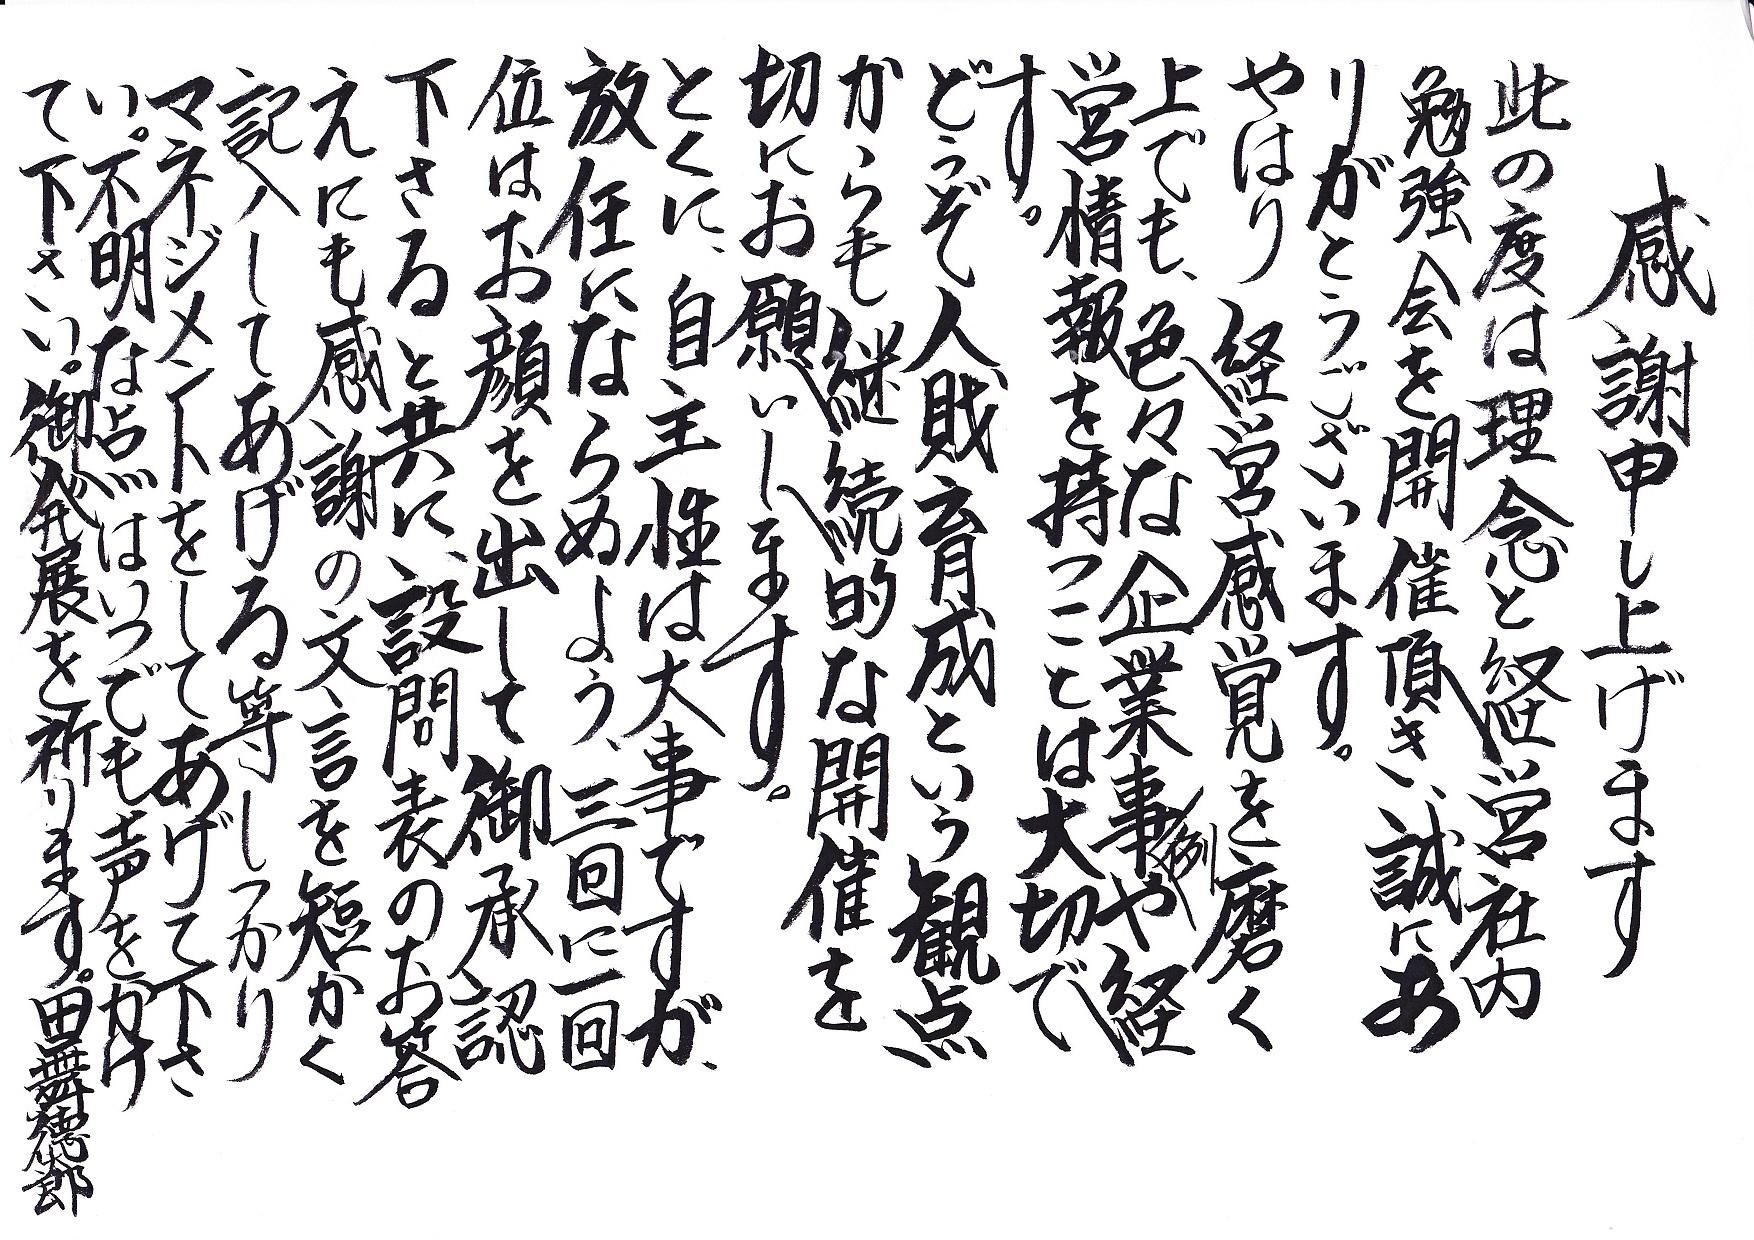 感謝申し上げます
此の度は理念と経営社内
勉強会を開催頂き、誠にあ
りがとうございます。
やはり経営感覚を磨く
上でも、色々な企業事例や経
営情報を持つことは大切で
す。
どうぞ人財育成という観点
からも継続的な開催を
切にお願いします。
とくに、自主性は大事ですが、
放任にならぬよう、三回に一回
位はお顔を出して御承認
下さると共に、設問表のお答
えにも感謝の文言を短かく
記入してあげる等しっかり
マネジメントをしてあげて下さ
い。不明な点はいつでも声をかけ
て下さい。御発展を祈ります。田舞徳太郎